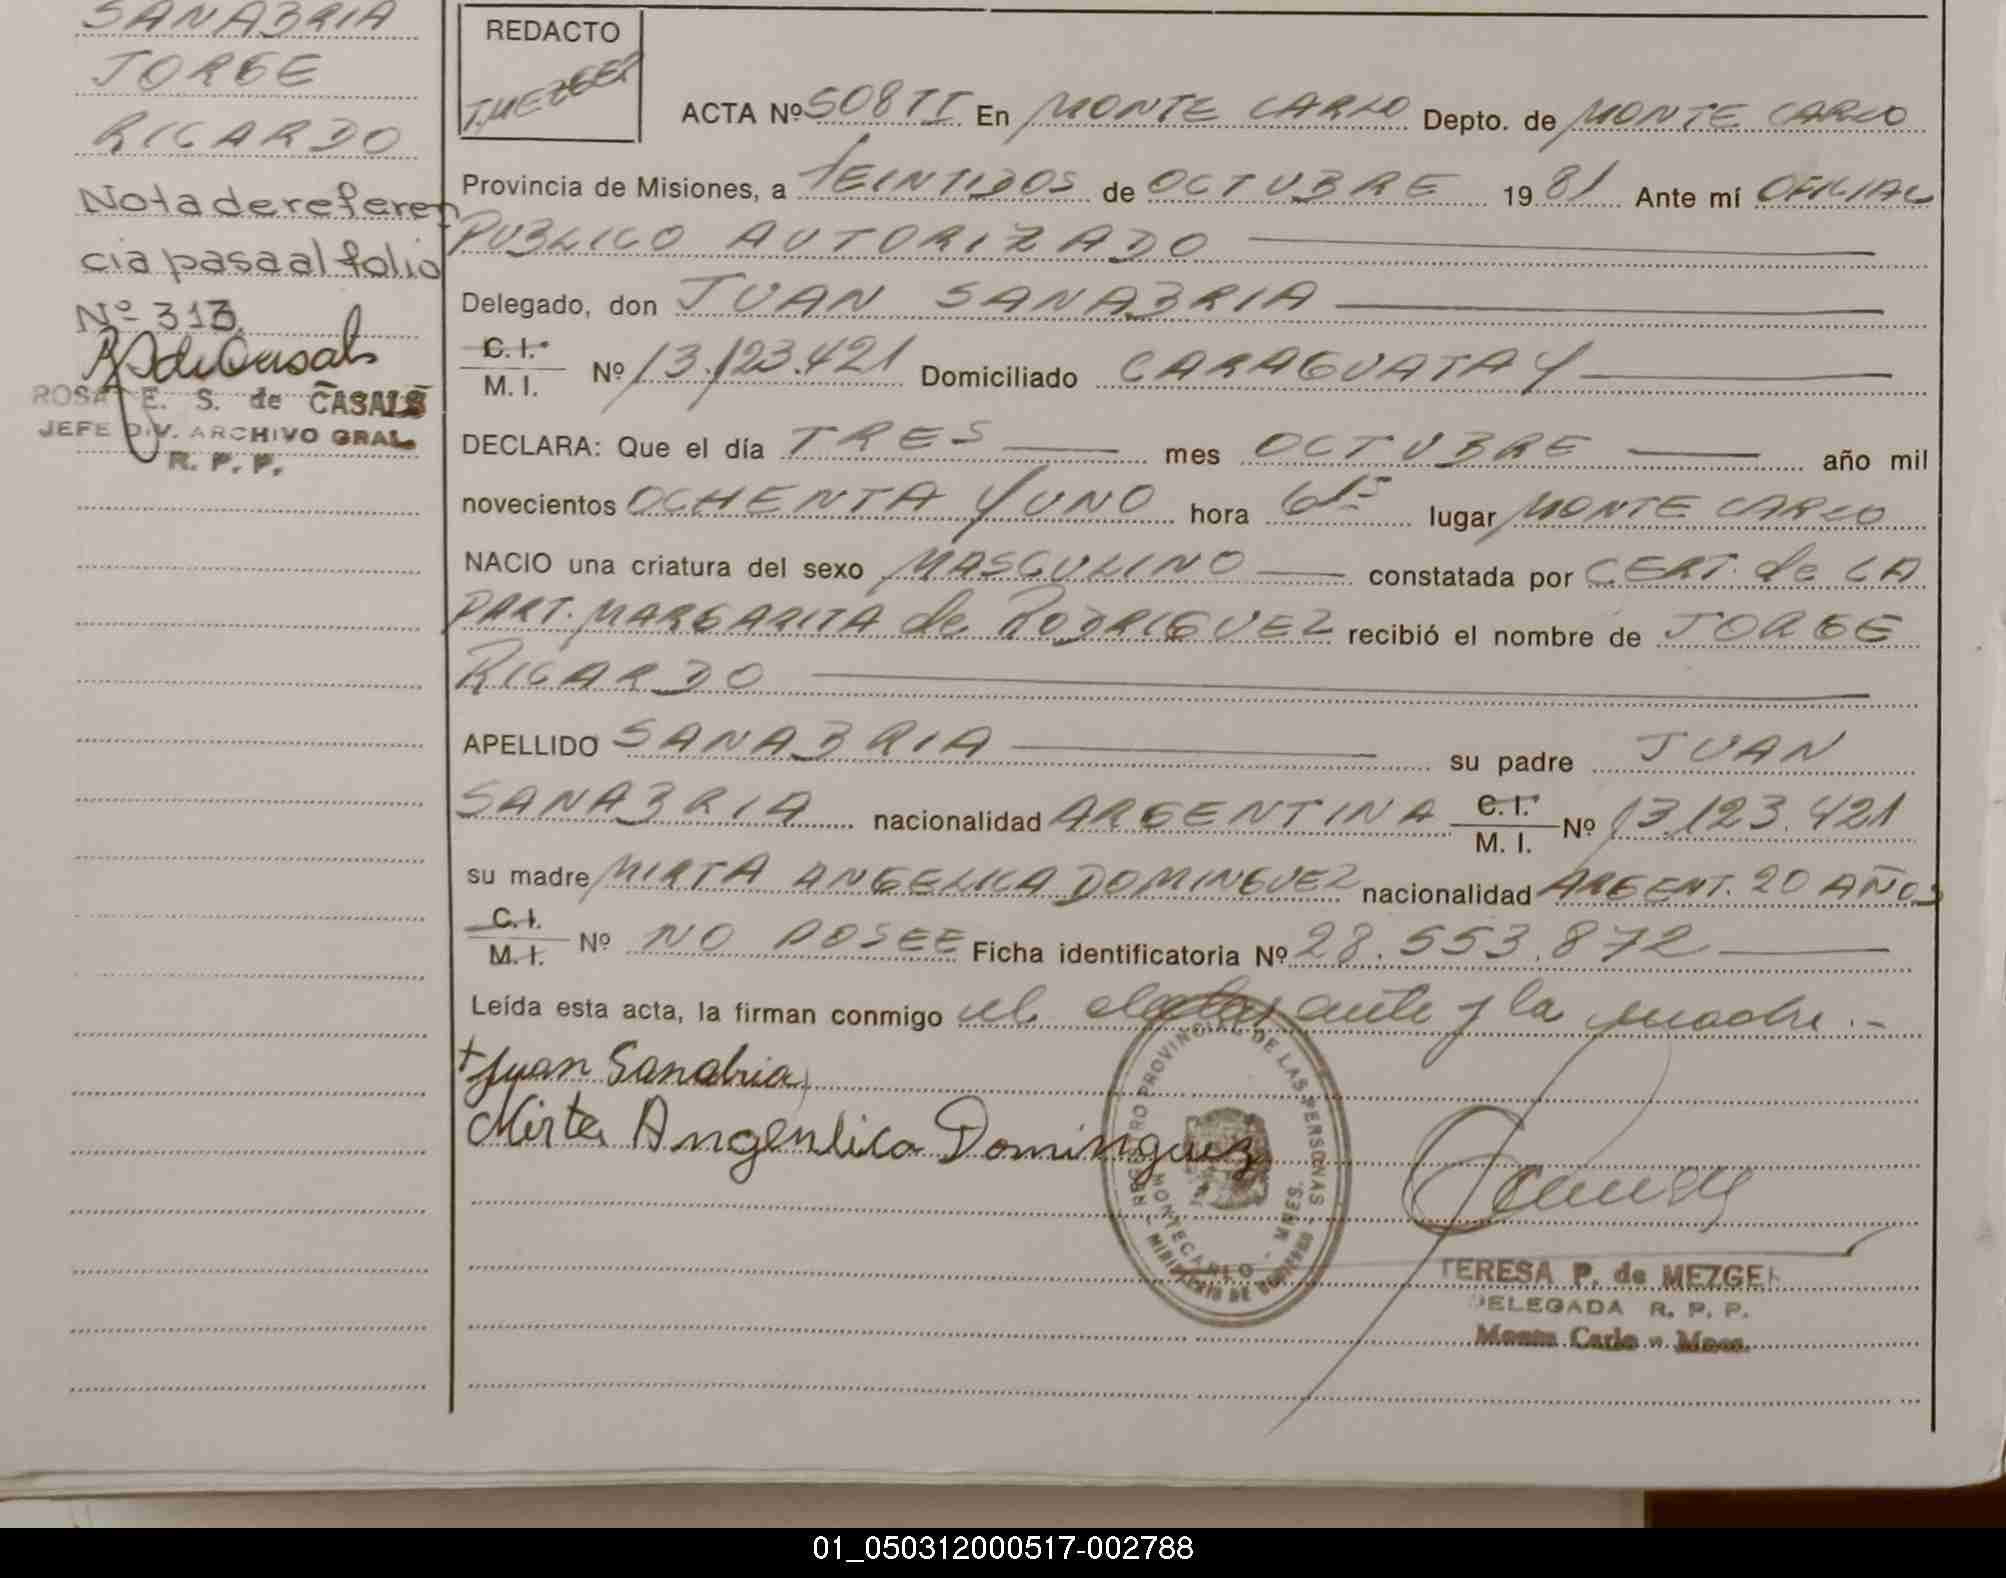 SANABRIA
JORGE
RICARDO
Nota de referen
cia pasa al folio
Nº 313.
ROSA E. S. de CASALS
JEFE DIV. ARCHIVO GRAL.
R. P. P.
REDACTO
T. MEZGER
ACTA Nº 508 TI En MONTE CARLO Depto. de MONTE CARLO
Provincia de Misiones, a VEINTIDOS de OCTUBRE 1981 Ante mí OFICIAL
PUBLICO AUTORIZADO
Delegado, don JUAN SANABRIA
C. I.
M. I. Nº 13.123.421 Domiciliado CARAGUATAY
DECLARA: Que el día TRES mes OCTUBRE año mil
novecientos OCHENTA Y UNO hora 6 15 lugar MONTE CARLO
NACIO una criatura del sexo MASCULINO constatada por CERT. de LA
PART. MARGARITA de RODRIGUEZ recibió el nombre de JORGE
RICARDO
APELLIDO SANABRIA su padre JUAN
SANABRIA nacionalidad ARGENTINA C. I.
M. I. Nº 13.123.421
su madre MIRTA ANGELICA DOMINGUEZ nacionalidad ARGENT. 20 AÑOS
C. I.
M. I. Nº NO POSEE Ficha identificatoria Nº 28.553.872
Leída esta acta, la firman conmigo el declarante y la madre.-
+Juan Sanabria
Mirta Angenlica Dominguez
REGISTRO PROVINCIAL DE LAS PERSONAS
MONTECARLO - MNES.
MINISTERIO DE GOBIERNO
TERESA P. de MEZGER
DELEGADA R. P. P.
Monte Carlo - Mnes.
01_050312000517-002788